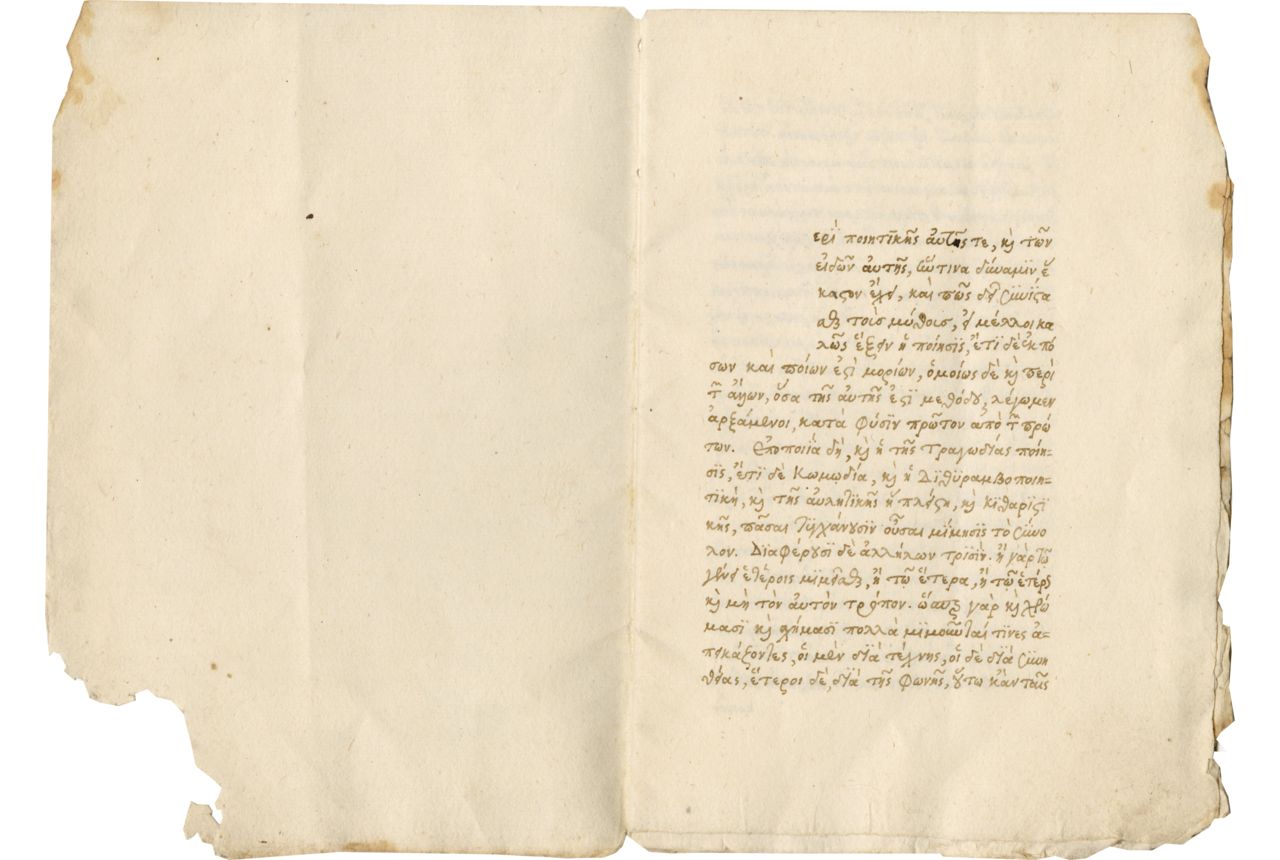 ερὶ ποιητικῆς αὐτῆς τε, κὶ τῶν
εἰδῶν αὐτῆς, ἥντινα δύναμιν ἕ
καστον ἔχει, καὶ πῶς δεῖ συνίστα
σθαι τοὺς μύθους, εἰ μέλλοι κα
λῶς ἕξειν ἡ ποίησις, ἔτι δὲ ἐκ πό
σων καὶ ποίων ἐστὶ μορίων, ὁμοίως δὲ κὶ περὶ
τῶν ἄλλων, ὅσα τῆς αὐτῆς ἐστι μεθόδου, λέγωμεν
ἀρξάμενοι, κατὰ φύσιν πρῶτον ἀπὸ τῶν πρώ
των. Ἐποποιΐα δὴ, κὶ ἡ τῆς τραγωδίας ποίη-
σις, ἔτι δὲ κωμῳδία, κὶ ἡ διθυραμβοποιη-
τικὴ, κὶ τῆς αὐλητικῆς ἡ πλείστη, κὶ κιθαριστι
κῆς, πᾶσαι τυγχάνουσιν οὖσαι μίμησις τὸ σύνο
λον. Διαφέρουσι δὲ ἀλλήλων τρισὶν. ἢ γὰρ τῷ
γένει ἑτέροις μιμεῖσθαι, ἢ τῷ ἕτερα, ἢ τῷ ἑτέρως
κὶ μὴ τὸν αὐτὸν τρόπον. ὥσπερ γὰρ κὶ χρώ
μασι κὶ σχήμασι πολλὰ μιμοῦνταί τινες ἀ-
πεικάζοντες, οἱ μὲν διὰ τέχνης, οἱ δὲ διὰ συνη
θείας, ἕτεροι δὲ, διὰ τῆς φωνῆς, οὕτω κἀν ταῖς